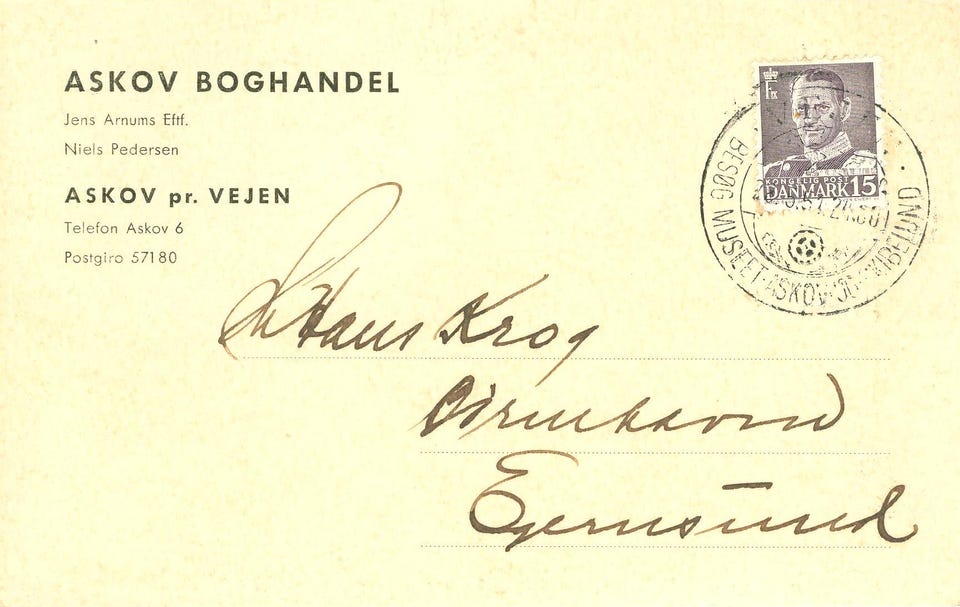 ASKOV BOGHANDEL
Jens Arnums Eftf.
Niels Pedersen
ASKOV pr. VEJEN
Telefon Askov 6
Postgiro 57180
KONGELIG POST
DANMARK 15
BESØG MUSEET ASKOV OG SKIBELUND
Hr Hans Krog
Egernsund